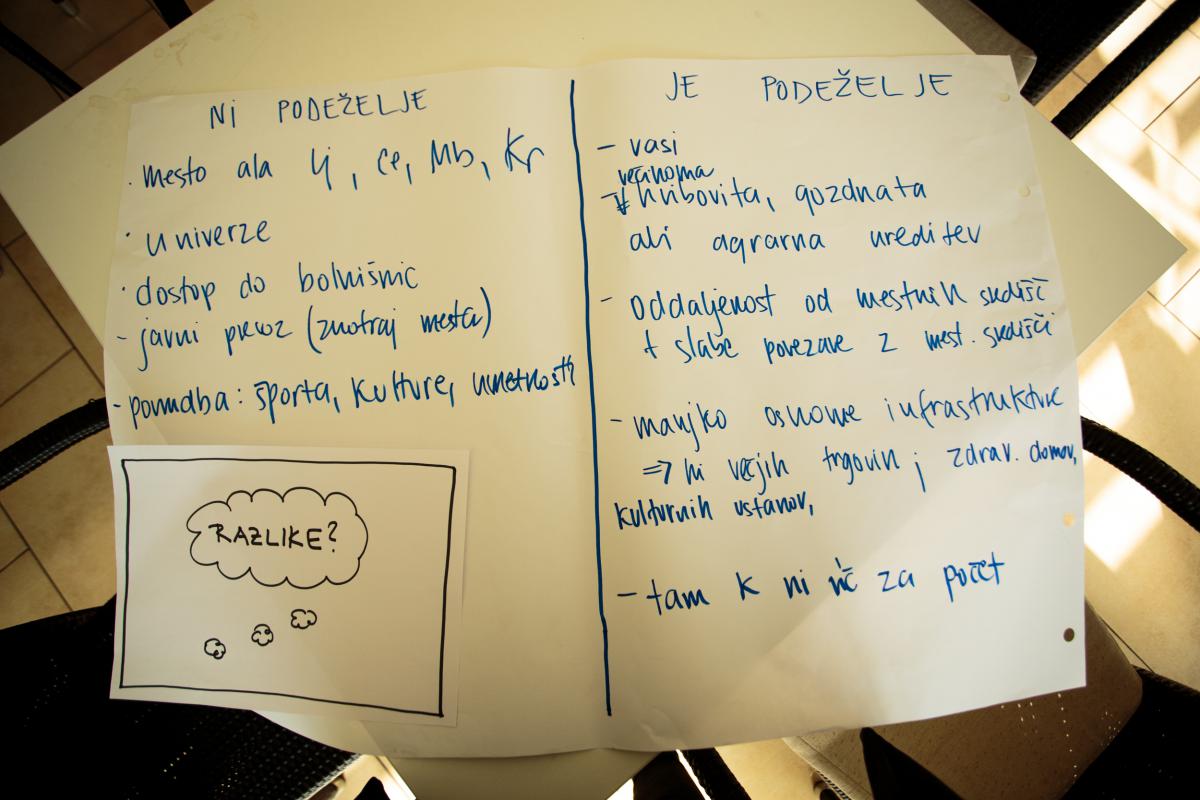 NI PODEŽELJE
· mesto ala Lj, Ce, Mb, Kr
· univerze
· dostop do bolnišnic
- javni prevoz (znotraj mesta)
- ponudba: športa, kulture, umetnosti
RAZLIKE?
JE PODEŽELJE
- vasi
večinoma
- v hribovita, gozdnata
ali agrarna ureditev
- oddaljenost od mestnih središč
+ slabe povezave z mest. središči
- manjko osnovne infrastrukture
⇒ ni večjih trgovin, zdrav. domov,
kulturnih ustanov,
- tam k ni nič za počet